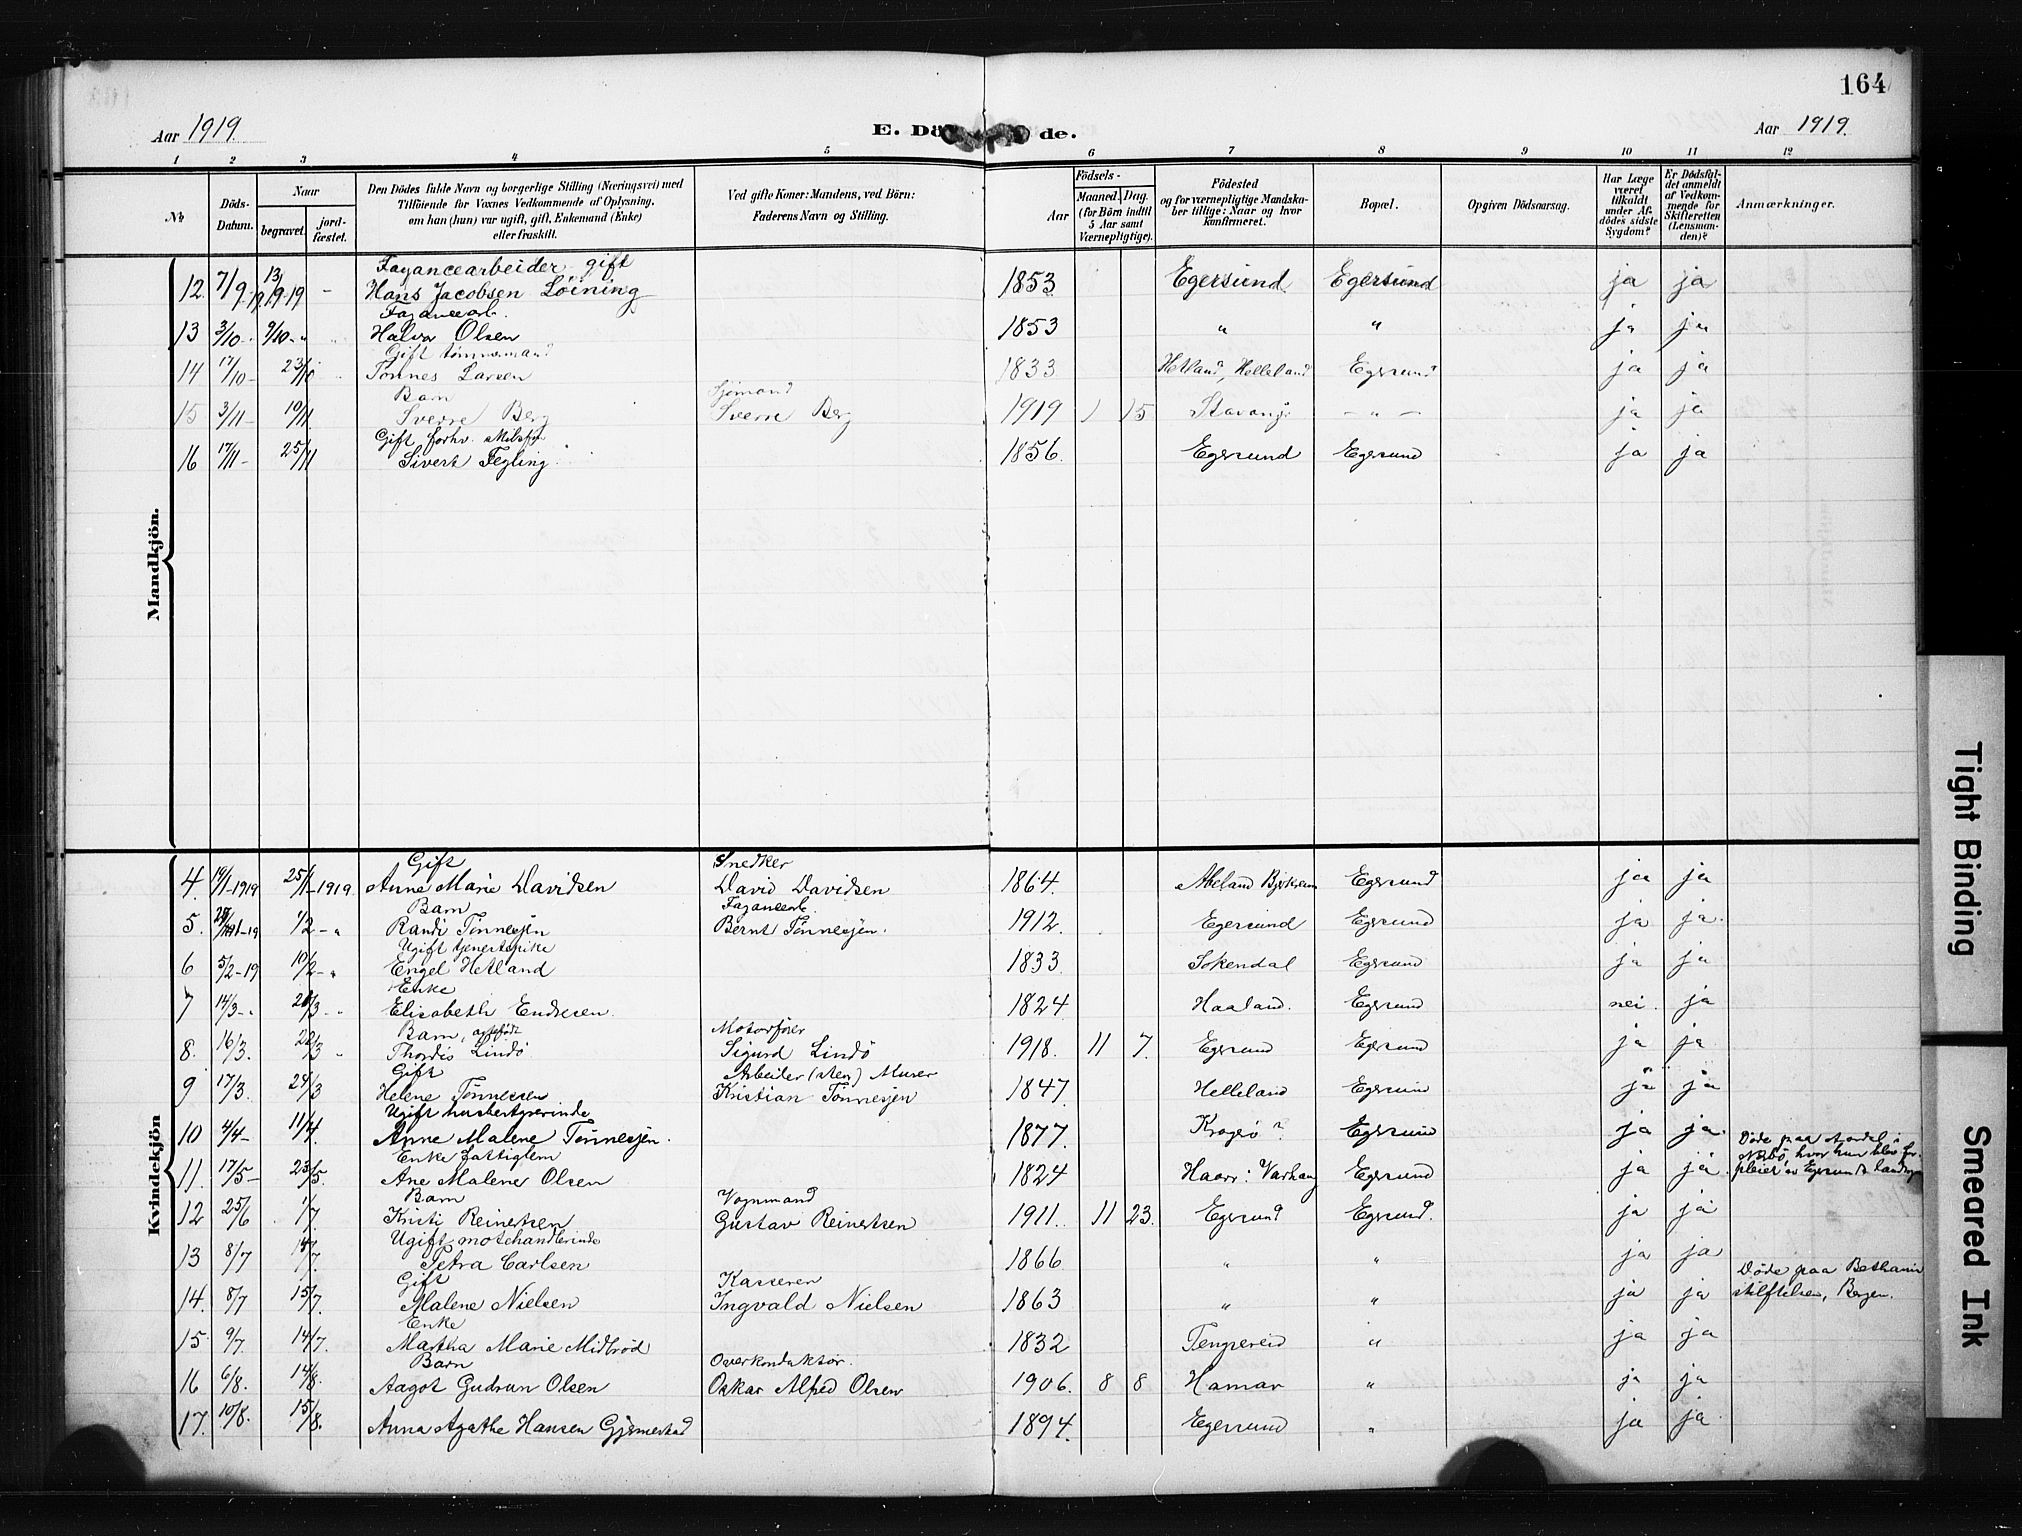 164
Aar 1919.
E. Dö de.
Aar 1919.
1 2 3 4 5 6 7 8 9 10 11 12
No
Döds-
Datum.
Naar
begravet.
jord-
fæstet.
Den Dödes fulde Navn og borgerlige Stilling (Næringsvei) med
Tilföiende for Voxnes Vedkommende af Oplysning,
om han (hun) var ugift, gift, Enkemand (Enke)
eller fraskilt.
Ved gifte Koner: Mandens, ved Börn:
Faderens Navn og Stilling.
Födsels-
Aar
Maaned.
Dag.
(for Börn indtil
5 Aar samt
Værnepligtige).
Födested
og for værnepligtige Mandska-
ber tillige: Naar og hvor
konfirmeret.
Bopæl.
Opgiven Dödsaarsag.
Har Læge
været
tilkaldt
under Af-
dödes sidste
Sygdom?
Er Dödsfal-
det anmeldt
af Vedkom-
mende for
Skifteretten
(Lensman-
den)?
Anmærkninger.
Mandkjön.
Fayancearbeider gift
12. 7/9 19 13/9 19 - Hans Jacobsen Löining 1853 Egersund Egersund ja ja
Fayancearb.
13 3/10 - " 9/10 - " Halvor Olsen 1853 " " ja ja
Gift tømmermand
14 17/10 - 23/10 Tönnes Larsen 1833 Hetland, Helleland Egersund ja ja
Barn Sjømand
15 3/11 - 10/11. Sverre Berg Sverre Berg 1919 1 15 Stavanger - " - ja ja
Gift forhv.
16 17/11 - 25/11 Sivert Fegling 1856. Egersund Egersund ja ja
Kvindekjön
Gift Snedker
4. 19/1-1919 25/1-1919. Anne Marie Davidsen David Davidsen 1864. Abeland Egersund ja ja
Barn Fayancearb.
5. 1/2 - " Randi Tönnesjen Bernt Tönnesjen. 1912. Egersund Egersund ja ja.
Ugift tjenestepike
6 5/2-19 10/2 - " Engel Hetland 1833 Sokendal Egersund ja ja
Enke
7 14/3 - " Elisabeth Endresen. 1824 Haaland. Egersund nei. ja
Barn, Motorfører
8. 16/3. 22/3 " Thordis Lindö Sigurd Lindö 1918. 11 7. Egersund Egersund ja ja
Gift Arbeider Murer
9 17/3. 24/3 Helene Tönnessen Kristian Tönnesjen 1847. Helleland Egersund ja ja
Ugift husbestyrerinde
10 4/4 - 11/4. Anne Malene Tönnesjen. 1877. Kragerö? Egersund ja ja.
Enke fattiglem
11. 17/5 - 23/5. Ane Malene Olsen 1824 Haar: Varhaug Egersund ja ja. Døde paa
hvor hun blev for-
pleiet av Egersunds
Barn Vognmand
12 25/6 1/7 Kristi Reinertsen Gustav Reinertsen 1911. 11 23. Egersund Egersund. ja ja
Ugift motehandlerinde
13 8/7 14/7 Petra Carlsen 1866 " " ja ja
Gift Kasserer
14. 8/7 15/7. Malene Nielsen Ingvald Nielsen 1863 " " ja ja Døde paa Bethania
stiftelsen, Bergen.
Enke
15. 9/7 14/7. Martha Marie Midbröd 1832 Tengsereid " ja ja
Barn Overkonduktør.
16 6/8. 14/8. Aagot Gudrun Olsen Oskar Alfred Olsen 1906. 8 8 Hamar " ja ja
17. 10/8. 15/8. Anna Agathe Hansen Gjermestad 1894. Egersund " ja ja
Tight Binding
Smeared Ink